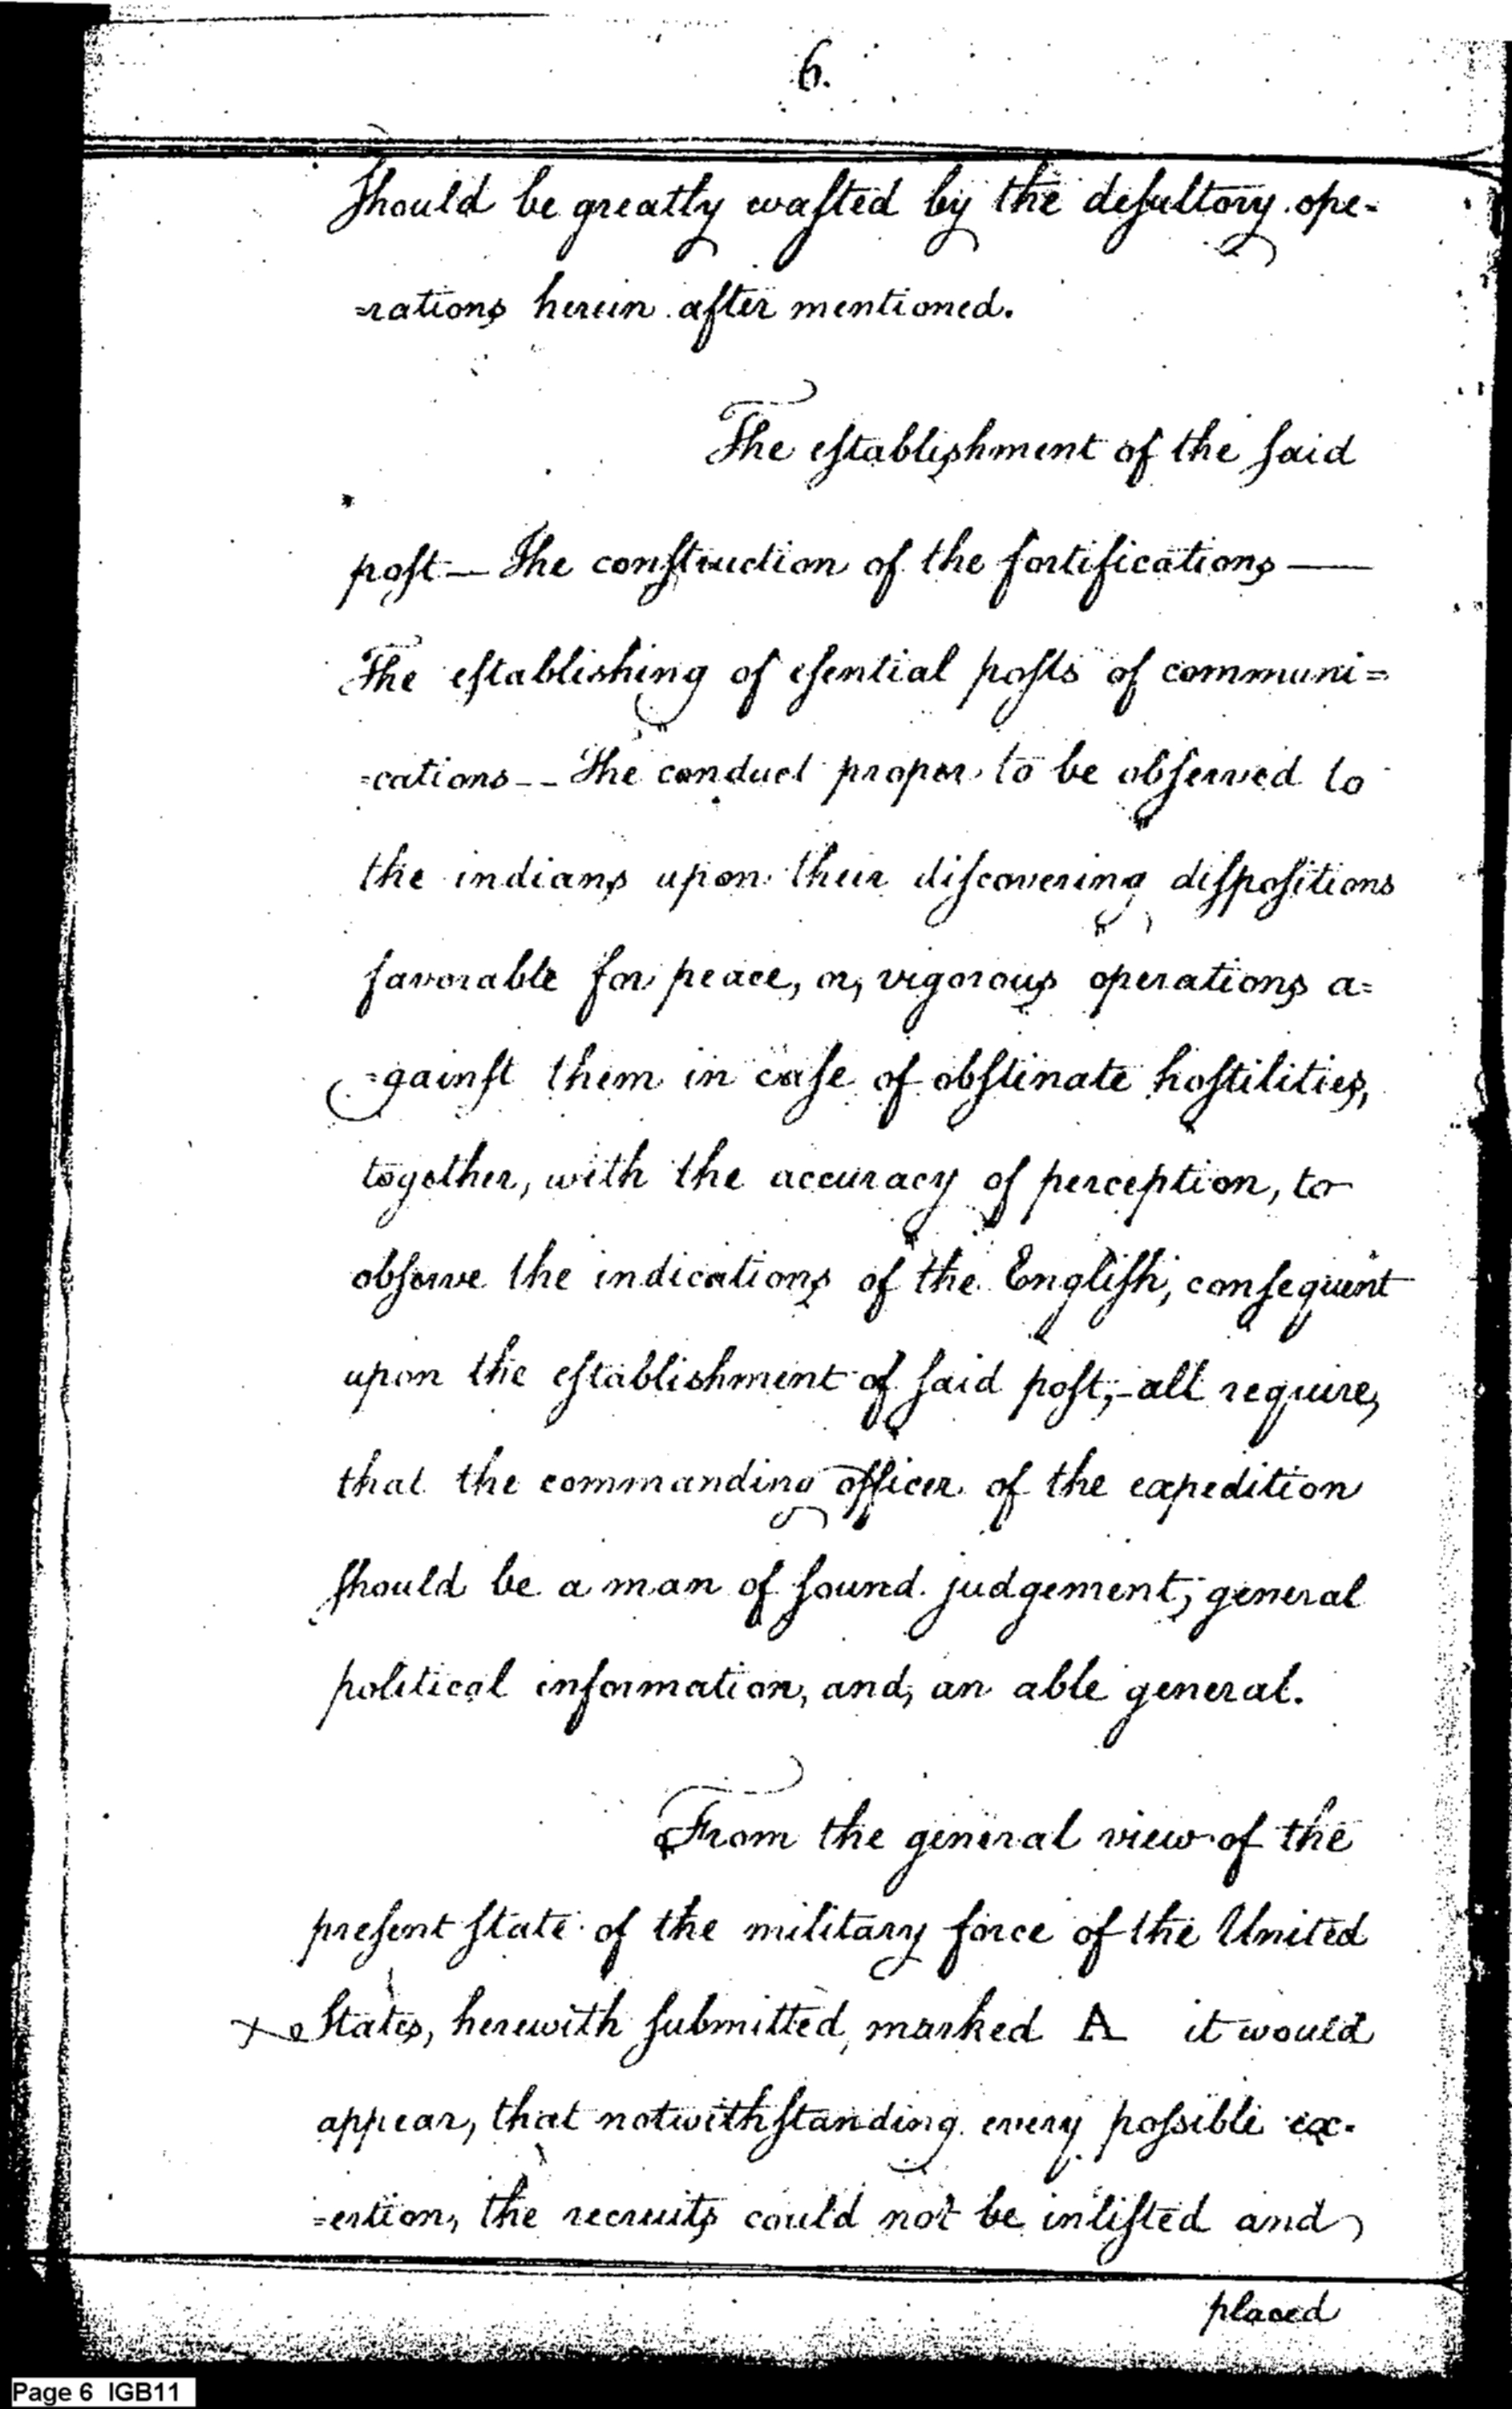 6.
Should be greatly wasted by the desultory ope-
=rations herein after mentioned.
The establishment of the said
post — The construction of the fortifications —
The establishing of esential posts of communi=
=cations -- The conduct proper to be observed to
the indians upon their discovering dispositions
favorable for peace, or, vigorous operations a=
=gainst them in case of obstinate hostilities,
together, with the accuracy of perception, to
observe the indications of the English, consequent
upon the establishment of said post, - all require,
that the commanding officer of the expedition
should be a man of sound judgement, general
political information, and, an able general.
From the general view of the
present state of the military force of the United
x States, herewith submitted, marked A it would
appear, that notwithstanding every possible ex-
=ertion, the recruits could not be inlisted and
placed
Page 6 IGB11